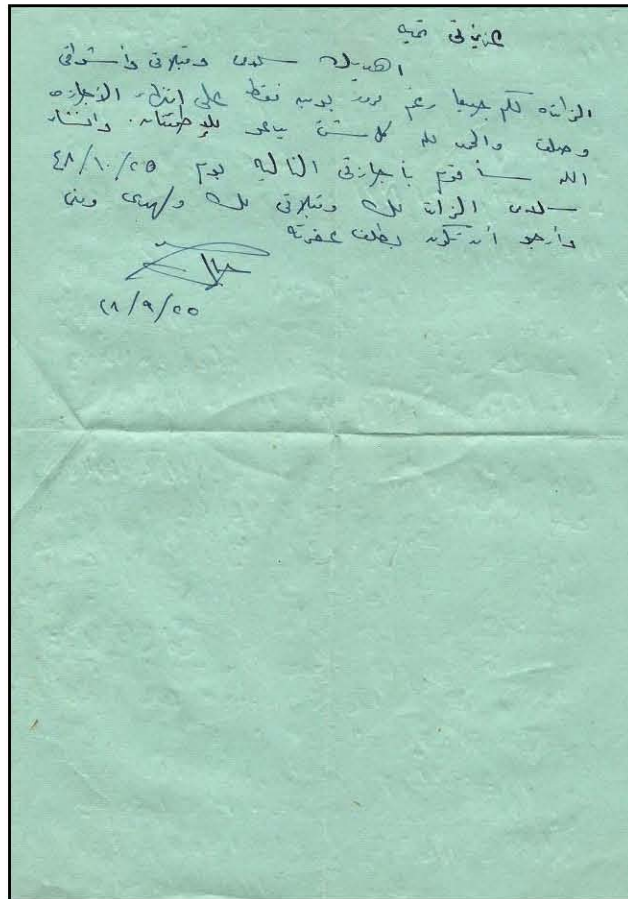 عزيزتي تحيه
اهديك سلامي وقبلاتي وأشواقي
الزائده لكم جميعا رغم مرور يومين فقط على انتهاء الأجازه
وصلت والحمد لله كل شئ يدعو للإطمئنان. وانشاء
الله سأقوم بأجازتي التاليه يوم ٢٥/١٠/٤٨
سلامي الزائد لك وقبلاتي لك و
وأرجو أن تكون
٢٥/٩/٤٨